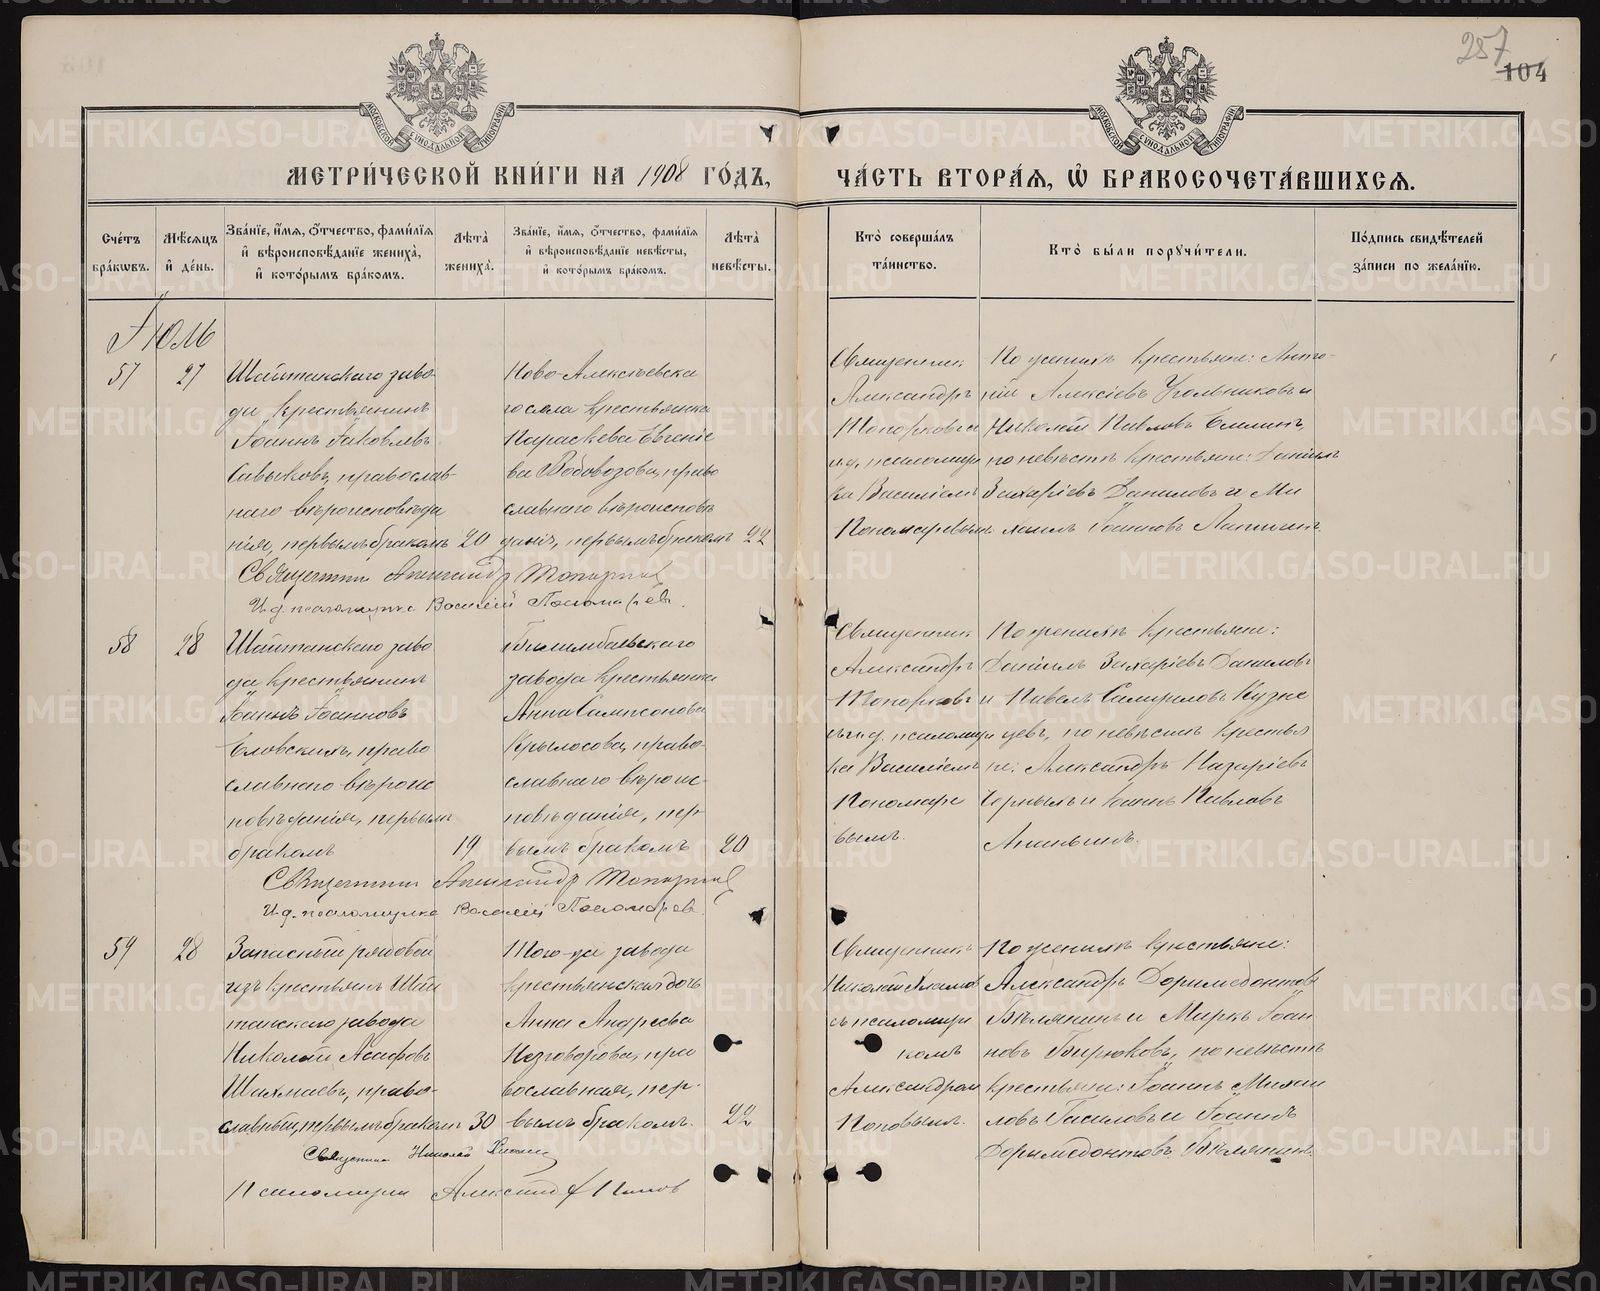 257
104
МЕТРИЧЕСКОЙ КНИГИ НА 1908 ГОДЪ,
ЧАСТЬ ВТОРАЯ, Ѡ БРАКОСОЧЕТАВШИХСЯ.
Счетъ браковъ.
Мѣсяцъ и день.
Званіе, имя, отчество, фамилія и вѣроисповѣданіе жениха, и которымъ бракомъ.
Лѣта жениха.
Званіе, имя, отчество, фамилія и вѣроисповѣданіе невѣсты, и которымъ бракомъ.
Лѣта невѣсты.
Кто совершалъ таинство.
Кто были поручители.
Подпись свидѣтелей записи по желанію.
Іюль
57
27
Шайтанскаго заво-
да крестьянинъ
Іоаннъ Іаковлевъ
православ-
наго вѣроисповѣда
нія, первымъ бракомъ
20
Ново-Алексѣевска
го села крестьянка
Параскева Евгеніе
ва Водовозова, право
славнаго вѣроисповѣ
данія, первымъ бракомъ
22
Священникъ
Александръ
Топорковъ и
и.д. псаломщи
ка Василіемъ
Пономаревым
По женихѣ крестьяне: Анто-
ній Алексіевъ Угольниковъ и
Николай Павловъ
по невѣстѣ крестьяне: Даніилъ
Захаріевъ Даниловъ и Ми
хаилъ Іоанновъ
Священникъ Александръ Топорковъ
И.д. псаломщика Василій Пономаревъ.
58
28
Шайтанскаго заво
да крестьянинъ
Іоаннъ Іоанновъ
Еловскихъ, право
славнаго вѣроис
повѣданія, первымъ
бракомъ
19
Билимбаевскаго
завода крестьянка
Анна Сампсонова
Крылосова, право-
славнаго вѣроис-
повѣданія, пер-
вымъ бракомъ
20
Священникъ
Александръ
Топорковъ
и.д. псаломщи
ка Василіемъ
Пономаре
вымъ.
По женихѣ крестьяне:
Даніилъ Захаріевъ Даниловъ
и Павелъ Самуиловъ Кузне
цовъ, по невѣстѣ крестья
не: Александръ Назаріевъ
Черныхъ и Іоаннъ Павловъ
Ананьинъ.
Священникъ Александръ Топорковъ
И.д. псаломщика Василій Пономаревъ.
59
28
Запасный рядовой
изъ крестьянъ Шай
танскаго завода
Николай Асафовъ
Шахмаевъ, право-
славный, первымъ бракомъ
30
Того-же завода
крестьянская дочь
Анна Андреева
Незговорова, пра
вославная, пер-
вымъ бракомъ.
22
Священникъ
Николай
съ псаломщи
комъ
Александром
Поповымъ.
По женихѣ крестьяне:
Александръ Доримедонтовъ
Бѣлянинъ и Маркъ Іоан
новъ Бирюковъ, по невѣстѣ
крестьяне: Іоаннъ Михаи
ловъ и Іоаннъ
Доримедонтовъ Бѣлянинъ.
Священникъ Николай
Псаломщикъ Александръ Поповъ
METRIKI.GASO-URAL.RU